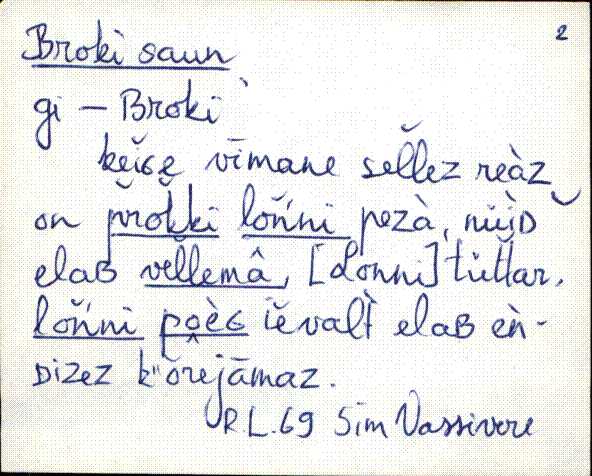 2
Broki saun
gi – Broki
kĕiɢe vīmane sel̆lez reàz
on prok̆ki lon̆'ni pezà, nüìᴅ
elaʙ vel̆lemâ, [Lonni] tüt̆tar.
lon̆'ni poèɢ ĭevalt̀ elaʙ èn-
ᴅizez k"orejāmaz.
R.L.69 Sim Vassivere